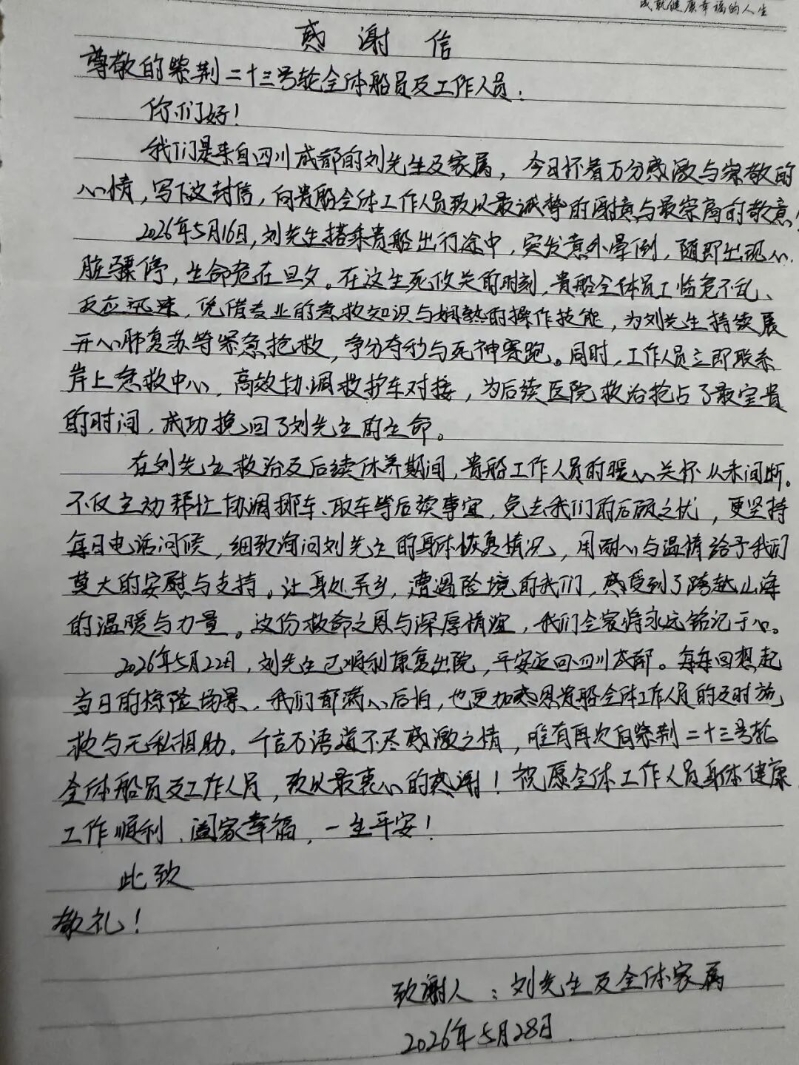 成就健康幸福的人生
感谢信
尊敬的紫荆二十三号轮全体船员及工作人员：
你们好！
我们是来自四川成都的刘先生及家属，今日怀着万分感激与崇敬的
心情，写下这封信，向贵船全体工作人员致以最诚挚的谢意与最崇高的敬意！
2026年5月16日，刘先生搭乘贵船出行途中，突发意外晕倒，随即出现心
脏骤停，生命危在旦夕。在这生死攸关的时刻，贵船全体员工临危不乱、
反应迅速，凭借专业的急救知识与娴熟的操作技能，为刘先生持续展
开心肺复苏等紧急抢救，争分夺秒与死神赛跑。同时，工作人员立即联系
岸上急救中心，高效协调救护车对接，为后续医院救治抢占了最宝贵
的时间，成功挽回了刘先生的生命。
在刘先生救治及后续休养期间，贵船工作人员的暖心关怀从未间断。
不仅主动帮忙协调挪车、取车等后续事宜，免去我们的后顾之忧，更坚持
每日电话问候，细致询问刘先生的身体恢复情况，用耐心与温情给予我们
莫大的安慰与支持。让身处异乡，遭遇险境的我们，感受到了跨越山海
的温暖与力量。这份救命之恩与深厚情谊，我们全家将永远铭记于心。
2026年5月22日，刘先生已顺利康复出院，平安返回四川成都。每每回想起
当日的惊险场景，我们都满心后怕，也更加感恩贵船全体工作人员的及时施
救与无私相助。千言万语道不尽感激之情，唯有再次向紫荆二十三号轮
全体船员及工作人员，致以最衷心的感谢！祝愿全体工作人员身体健康
工作顺利、阖家幸福，一生平安！
此致
敬礼！
致谢人：刘先生及全体家属
2026年5月28日